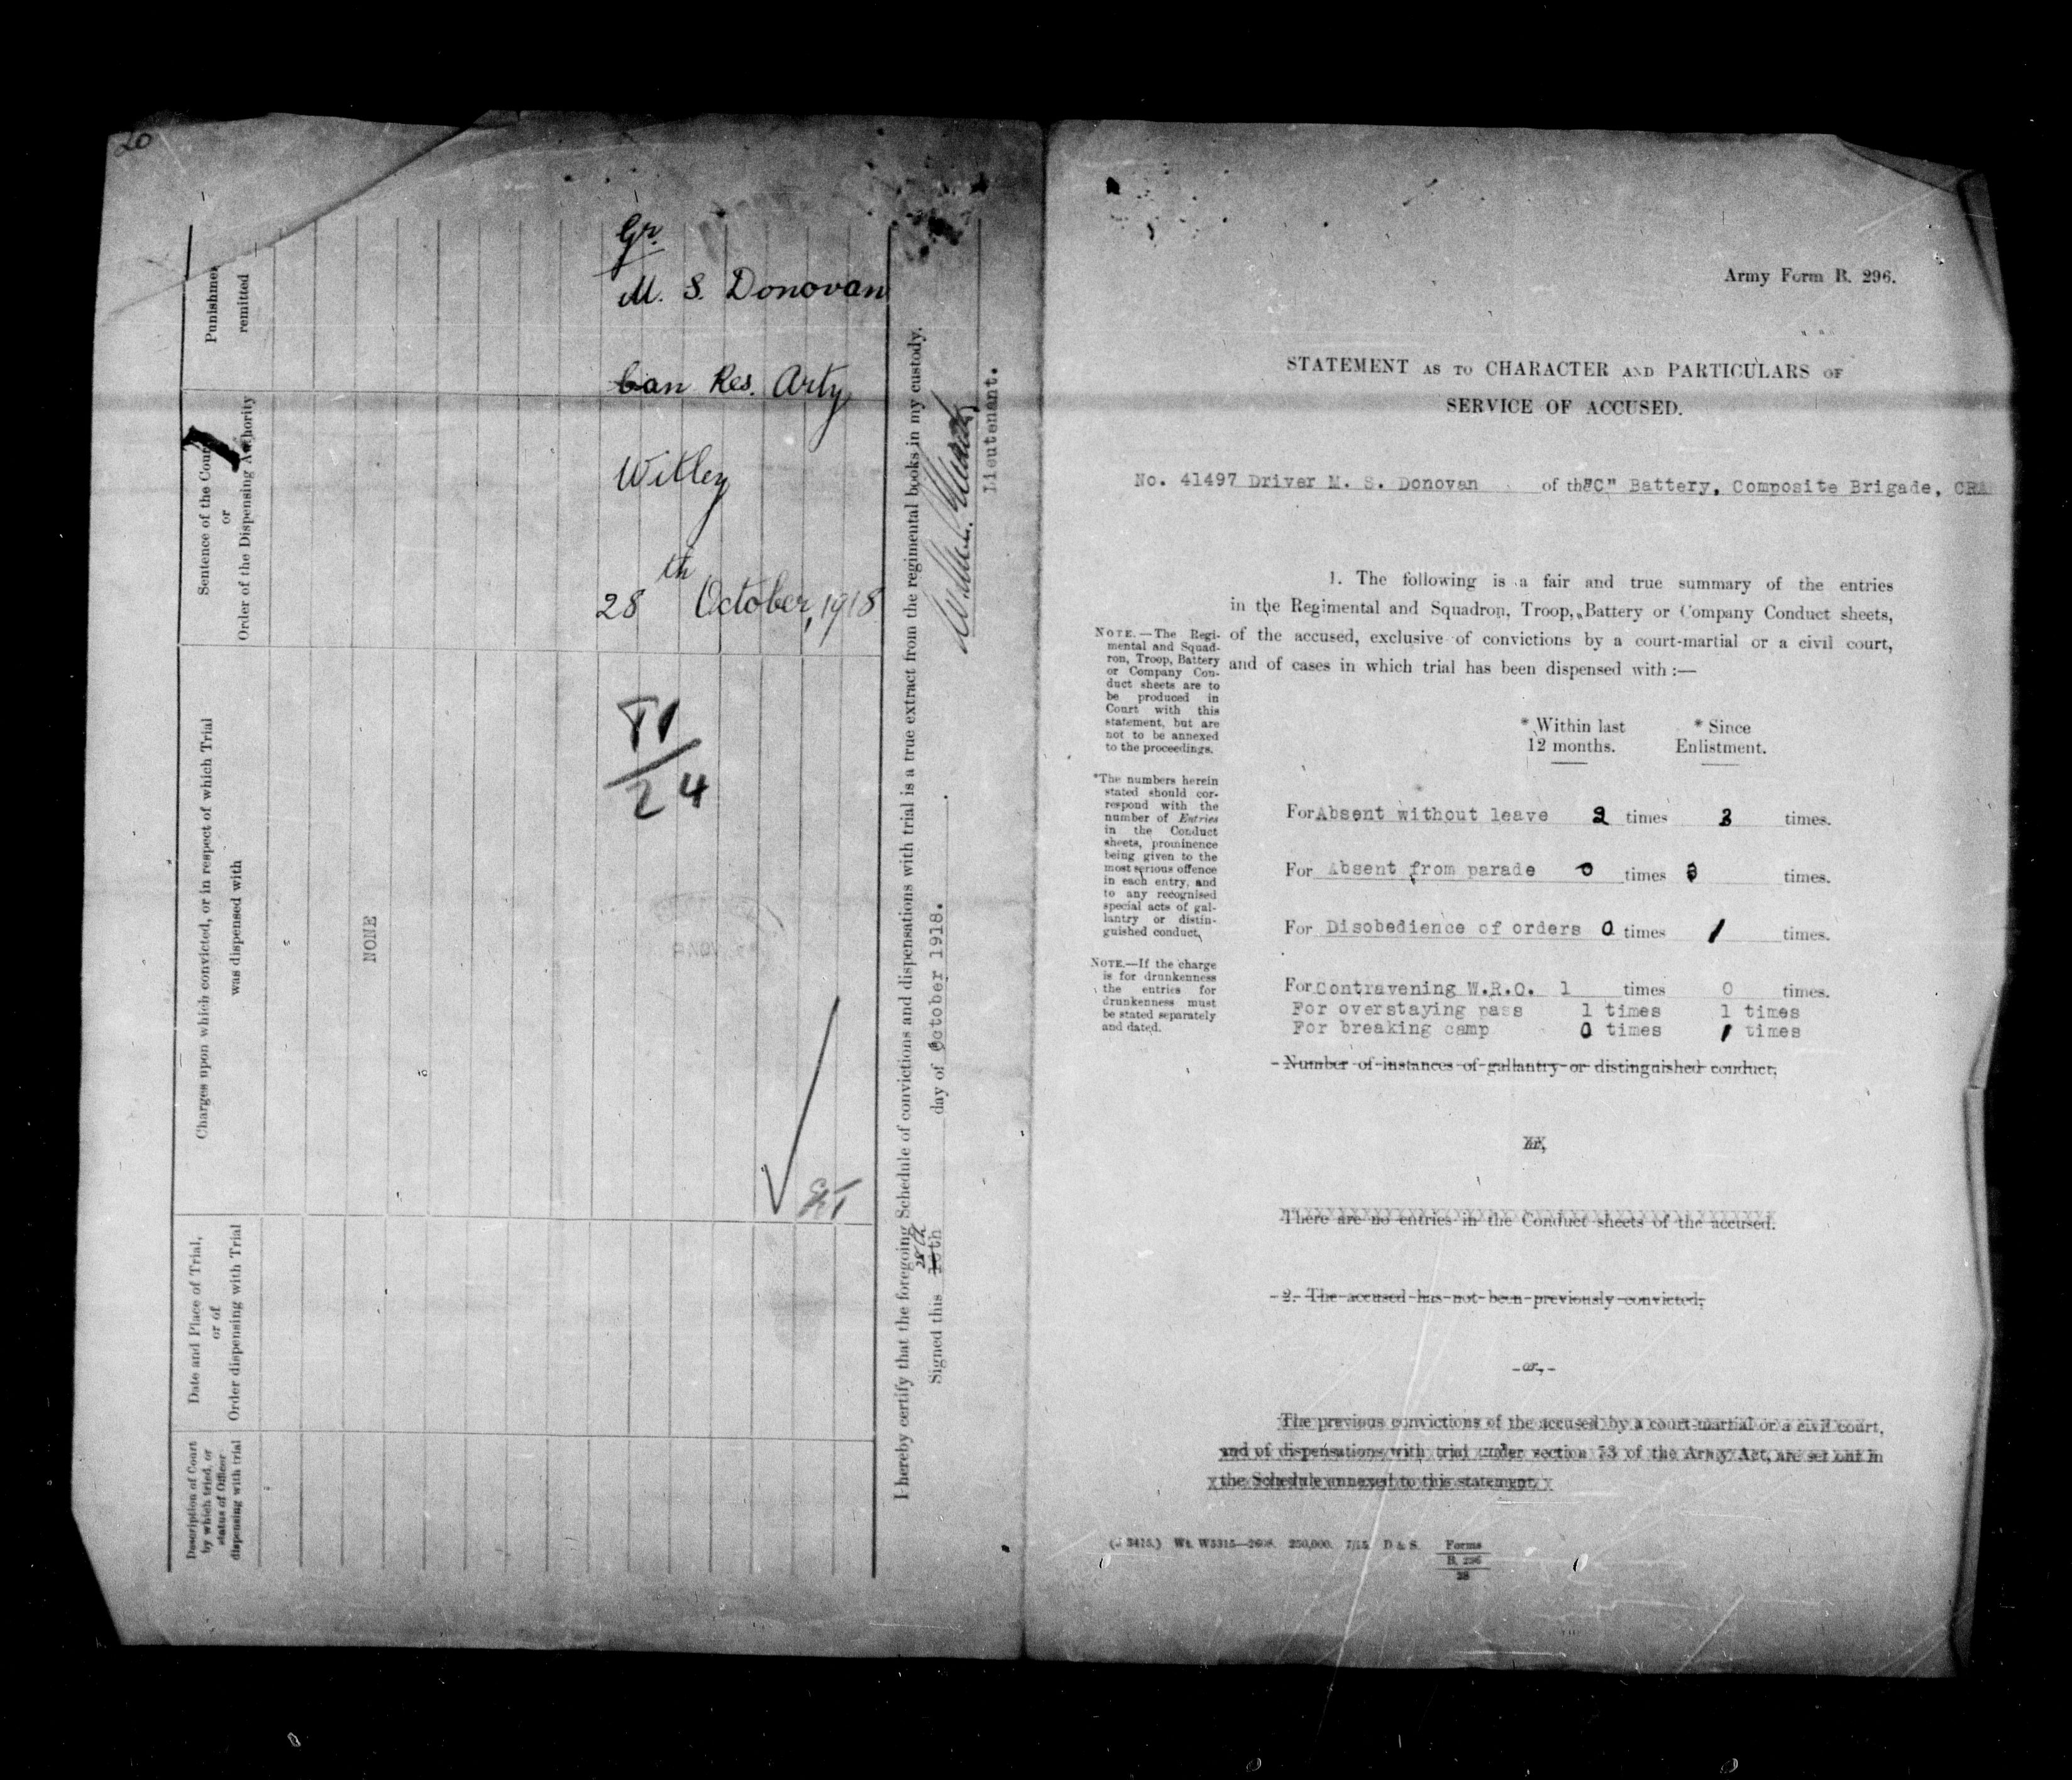 20
Gr.
M. S. Donovan
Can Res. Arty
Witley
28th October, 1918
T1
24
Punishment
remitted
Sentence of the Court
or
Order of the Dispensing Authority
Charges upon which convicted, or in respect of which Trial
was dispensed with
NONE
Date and Place of Trial,
or of
Order dispensing with Trial
Description of Court
by which tried, or
status of Officer
dispensing with trial
I hereby certify that the foregoing Schedule of convictions and dispensations with trial is a true extract from the regimental books in my custody.
Signed this 28th day of October 1918.
Lieutenant.
Army Form B. 296.
STATEMENT AS TO CHARACTER AND PARTICULARS OF
SERVICE OF ACCUSED.
No. 41497 Driver M. S. Donovan of the "C" Battery, Composite Brigade, CRA
1. The following is a fair and true summary of the entries
in the Regimental and Squadron, Troop, Battery or Company Conduct sheets,
of the accused, exclusive of convictions by a court-martial or a civil court,
and of cases in which trial has been dispensed with :—
NOTE.—The Regi-
mental and Squad-
ron, Troop, Battery
or Company Con-
duct sheets are to
be produced in
Court with this
statement, but are
not to be annexed
to the proceedings.
*The numbers herein
stated should cor-
respond with the
number of Entries
in the Conduct
sheets, prominence
being given to the
most serious offence
in each entry, and
to any recognised
special acts of gal-
lantry or distin-
guished conduct.
NOTE.—If the charge
is for drunkenness
the entries for
drunkenness must
be stated separately
and dated.
* Within last
12 months.
* Since
Enlistment.
For Absent without leave 2 times 3 times.
For Absent from parade 0 times 3 times.
For Disobedience of orders 0 times 1 times.
For Contravening W.R.O. 1 times 0 times.
For overstaying pass 1 times 1 times
For breaking camp 0 times 1 times
Number of instances of gallantry or distinguished conduct.
or,
There are no entries in the Conduct sheets of the accused.
2. The accused has not been previously convicted;
or,
The previous convictions of the accused by a court-martial or a civil court,
and of dispensations with trial under section 73 of the Army Act, are set out in
the Schedule annexed to this statement.
Wt. W3315—2608. 250,000. 7/15. D & S. Forms
B. 296
28